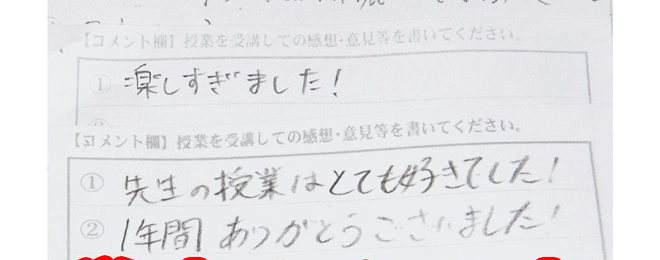 【コメント欄】授業を受講しての感想・意見等を書いてください。
① 楽しすぎました!
【コメント欄】授業を受講しての感想・意見等を書いてください。
① 先生の授業はとても好きでした!
② 1年間 ありがとうございました!